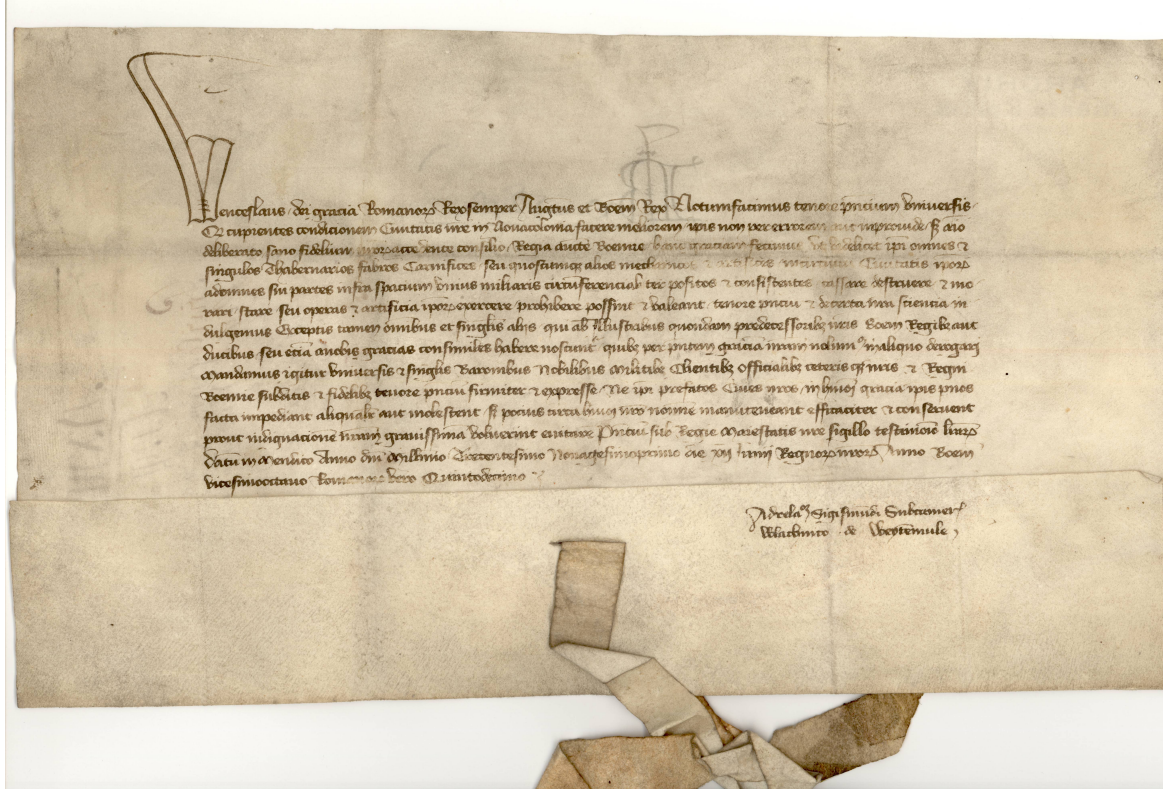 Wenceslaus dei gracia Romanorꝝ Rex semper Augustus et Boem̄ Rex Notumfacimus tenore p̄ncium vniuersis
Qz cupientes condicionem Ciuitatis n̄re in Nouacolonia facere meliorem ip̄is non per errorem aut improuide / sꝫ aīo
deliberato sano fidelium n̄rorꝝ accedente consilio / Regia aucte Boemie / hanc graciam fecimus vt videlicet ip̄i omnes ⁊
singulos Thabernarios fabros Carnifices / seu quoscumqꝫ alios mechanicos ⁊ artifices Ciuitatis ip̄orꝝ
ad omnes sui partes infra spacium vnius miliaris circūferencialiter positos ⁊ consistentes cassare destruere ⁊ mo
rari / stare seu operas ⁊ artificia ip̄orꝝ exercere prohibere possint ⁊ valeant / tenore p̄nciū ⁊ de certa n̄ra sciencia in
dulgemus Exceptis tamen om̄ibus et singl̄is alijs qui ab Illustribus quondam predecessoribꝫ n̄ris Boem̄ Regibꝫ aut
ducibus / seu eciā anobis gracias consimiles habere noscunt̄ quibꝫ per p̄ntem grāciā n̄ram nolum⁹ in aliquo derogari
Mandamus igitur vniuersis ⁊ singl̄is Baronibus Nobilibus Militibꝫ Clientibꝫ Officialibꝫ ceterisqꝫ n̄ris ⁊ Regni
Boemie subditis ⁊ fidelibꝫ tenore p̄nciū firmiter ⁊ expresse / Ne ip̄i prefatos Ciues n̄ros in hm̄oi gracia ip̄is p̄nos
facta impediant aliqualr̄ aut molestent / sꝫ pocius circa hm̄oi n̄ro nomine manuteneant efficaciter ⁊ conseruent
prout indignacionē n̄ram grauissimā voluerint euitare P̄nciū sub Regie Maiestatis n̄re sigillo testimonio lr̄arꝝ
Datum in Mendico Anno dn̄i Millesimo Trecentesimo Nonagesimoprimo die Junij Regnorꝝ n̄rorꝝ Anno Boem̄
vicesimooctauo Romanorꝝ vero Quintodecimo
Ad relac̄oꝫ Sigismūdi Subcamerꝭ
Wlachnico de Weytēmule